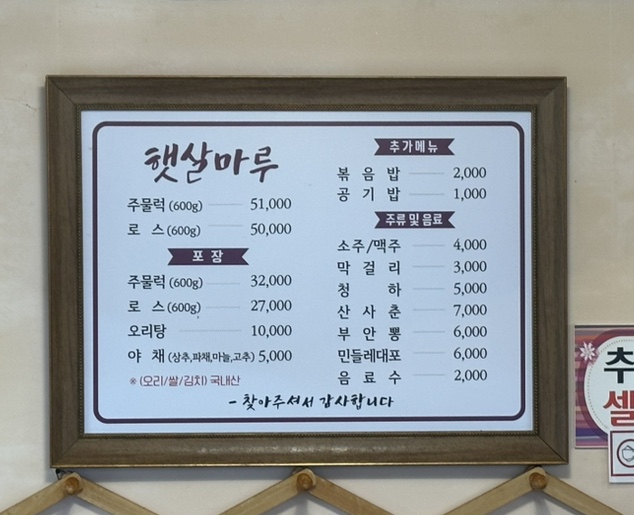 햇살마루
주물럭 (600g) 51,000
로 스 (600g) 50,000
포 장
주물럭 (600g) 32,000
로 스 (600g) 27,000
오리탕 10,000
야 채 (상추,파채,마늘,고추) 5,000
※ (오리/쌀/김치) 국내산
추가메뉴
볶 음 밥 2,000
공 기 밥 1,000
주류 및 음료
소주/맥주 4,000
막 걸 리 3,000
청 하 5,000
산 사 춘 7,000
부 안 뽕 6,000
민들레대포 6,000
음 료 수 2,000
- 찾아주셔서 감사합니다
추
셀